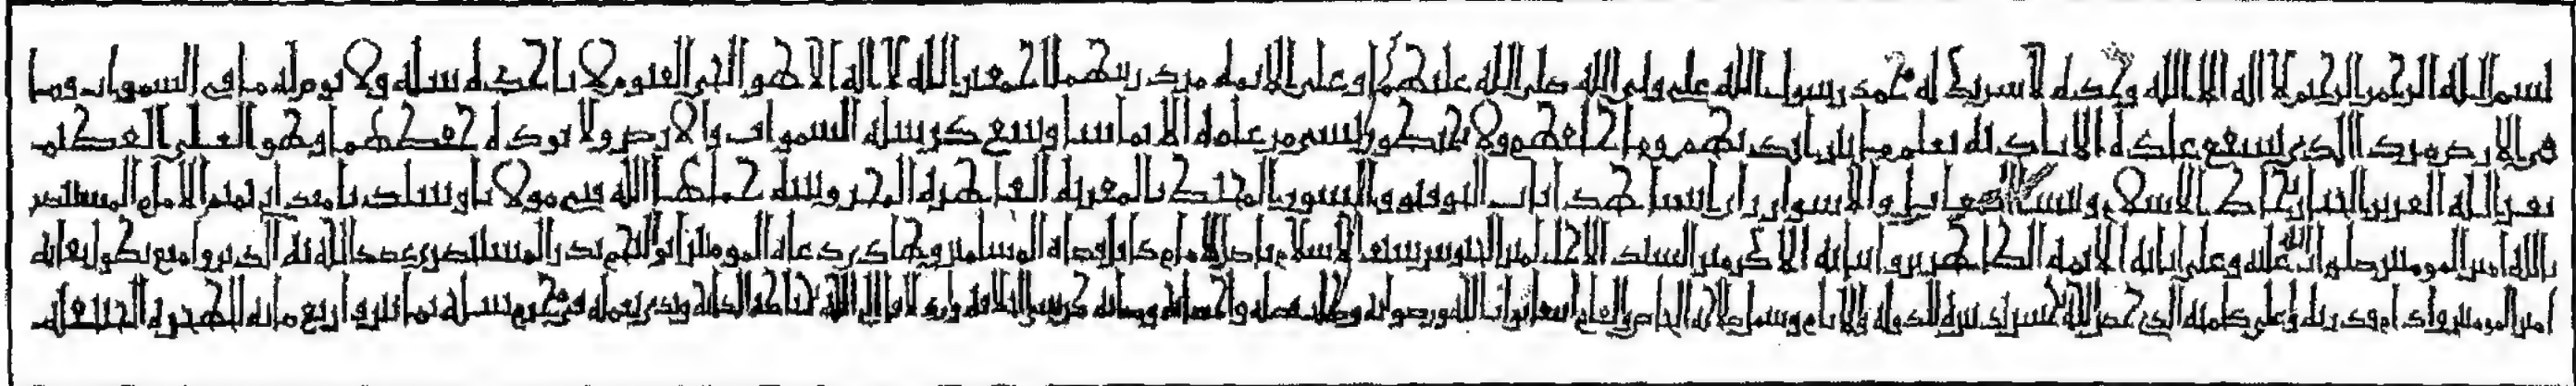 بسم الله الرحمن الرحيم لا اله الا الله وحده لا شريك له محمد رسول الله علي ولي الله صلى الله عليهما وعلى الائمة من ذريتهما اجمعين الله لا اله الا هو الحي القيوم لا تاخذه سنة ولا نوم له ما في السموات وما
في الارض من ذا الذي يشفع عنده الا باذنه يعلم ما بين ايديهم وما خلفهم ولا يحيطون بشي من علمه الا بما شا وسع كرسيه السموات والارض ولا يوده حفظهما وهو العلي العظيم
بعز الله العزيز الجبار يحاط الاسلام وتنشا المعاقل والاسوار انشا هذا باب التوفيق والسور المحيط بالمعزية القاهرة المحروسة حماها الله فتى مولانا وسيدنا معد ابي تميم الامام المستنصر
بالله امير المومنين صلوات الله عليه وعلى ابائه الائمة الطاهرين وابنائه الاكرمين السيد الاجل امير الجيوش سيف الاسلام ناصر الامام كافل قضاة المسلمين وهادي دعاة المومنين ابو النجم بدر المستنصري عضد الله به الدين وامتع بطول بقائه
امير المومنين وادام قدرته واعلى كلمته الذي حصن الله بحسن تدبيره الدولة والانام وشمل صلاحه الخاص والعام ابتغا ثواب الله ورضوانه وطلب فضله واحسانه وصيانة كرسي الخلافة وازدلافا الى الله بحياطة الكافة وبدي بعمله في محرم سنة ثمانين واربع مائة